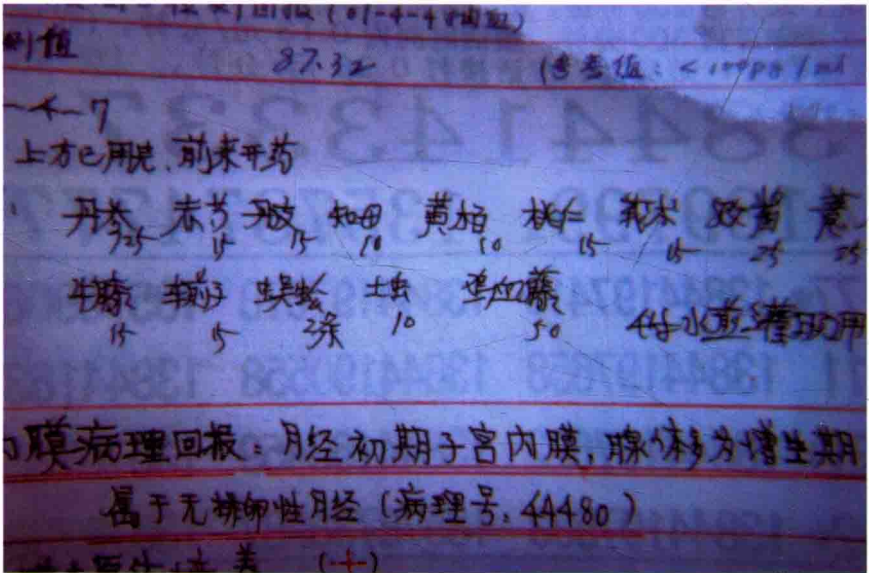 回报(01-4-4
值 87.32 (参考值: <100pg/ml
-4-7
上方已用完、前来开药
丹参25 赤芍15 丹皮15 知母10 黄柏10 桃仁15 莪术15 败酱25 薏25
牛膝15 车前子15 蜈蚣2条 土虫10 鸡血藤50 4付水煎
膜病理回报:月经初期子宫内膜,腺体多为增生期
属于无排卵性月经(病理号:44480)
原体培养 (+)